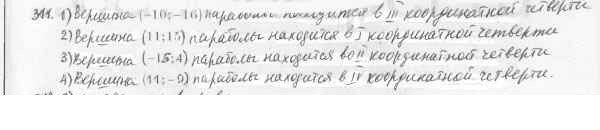 311. 1) Вершина (-10; -16) параболы находится в III координатной четверти
2) Вершина (11; 15) параболы находится в I координатной четверти
3) Вершина (-15; 4) параболы находится во II координатной четверти
4) Вершина (11; -9) параболы находится в IV координатной четверти.